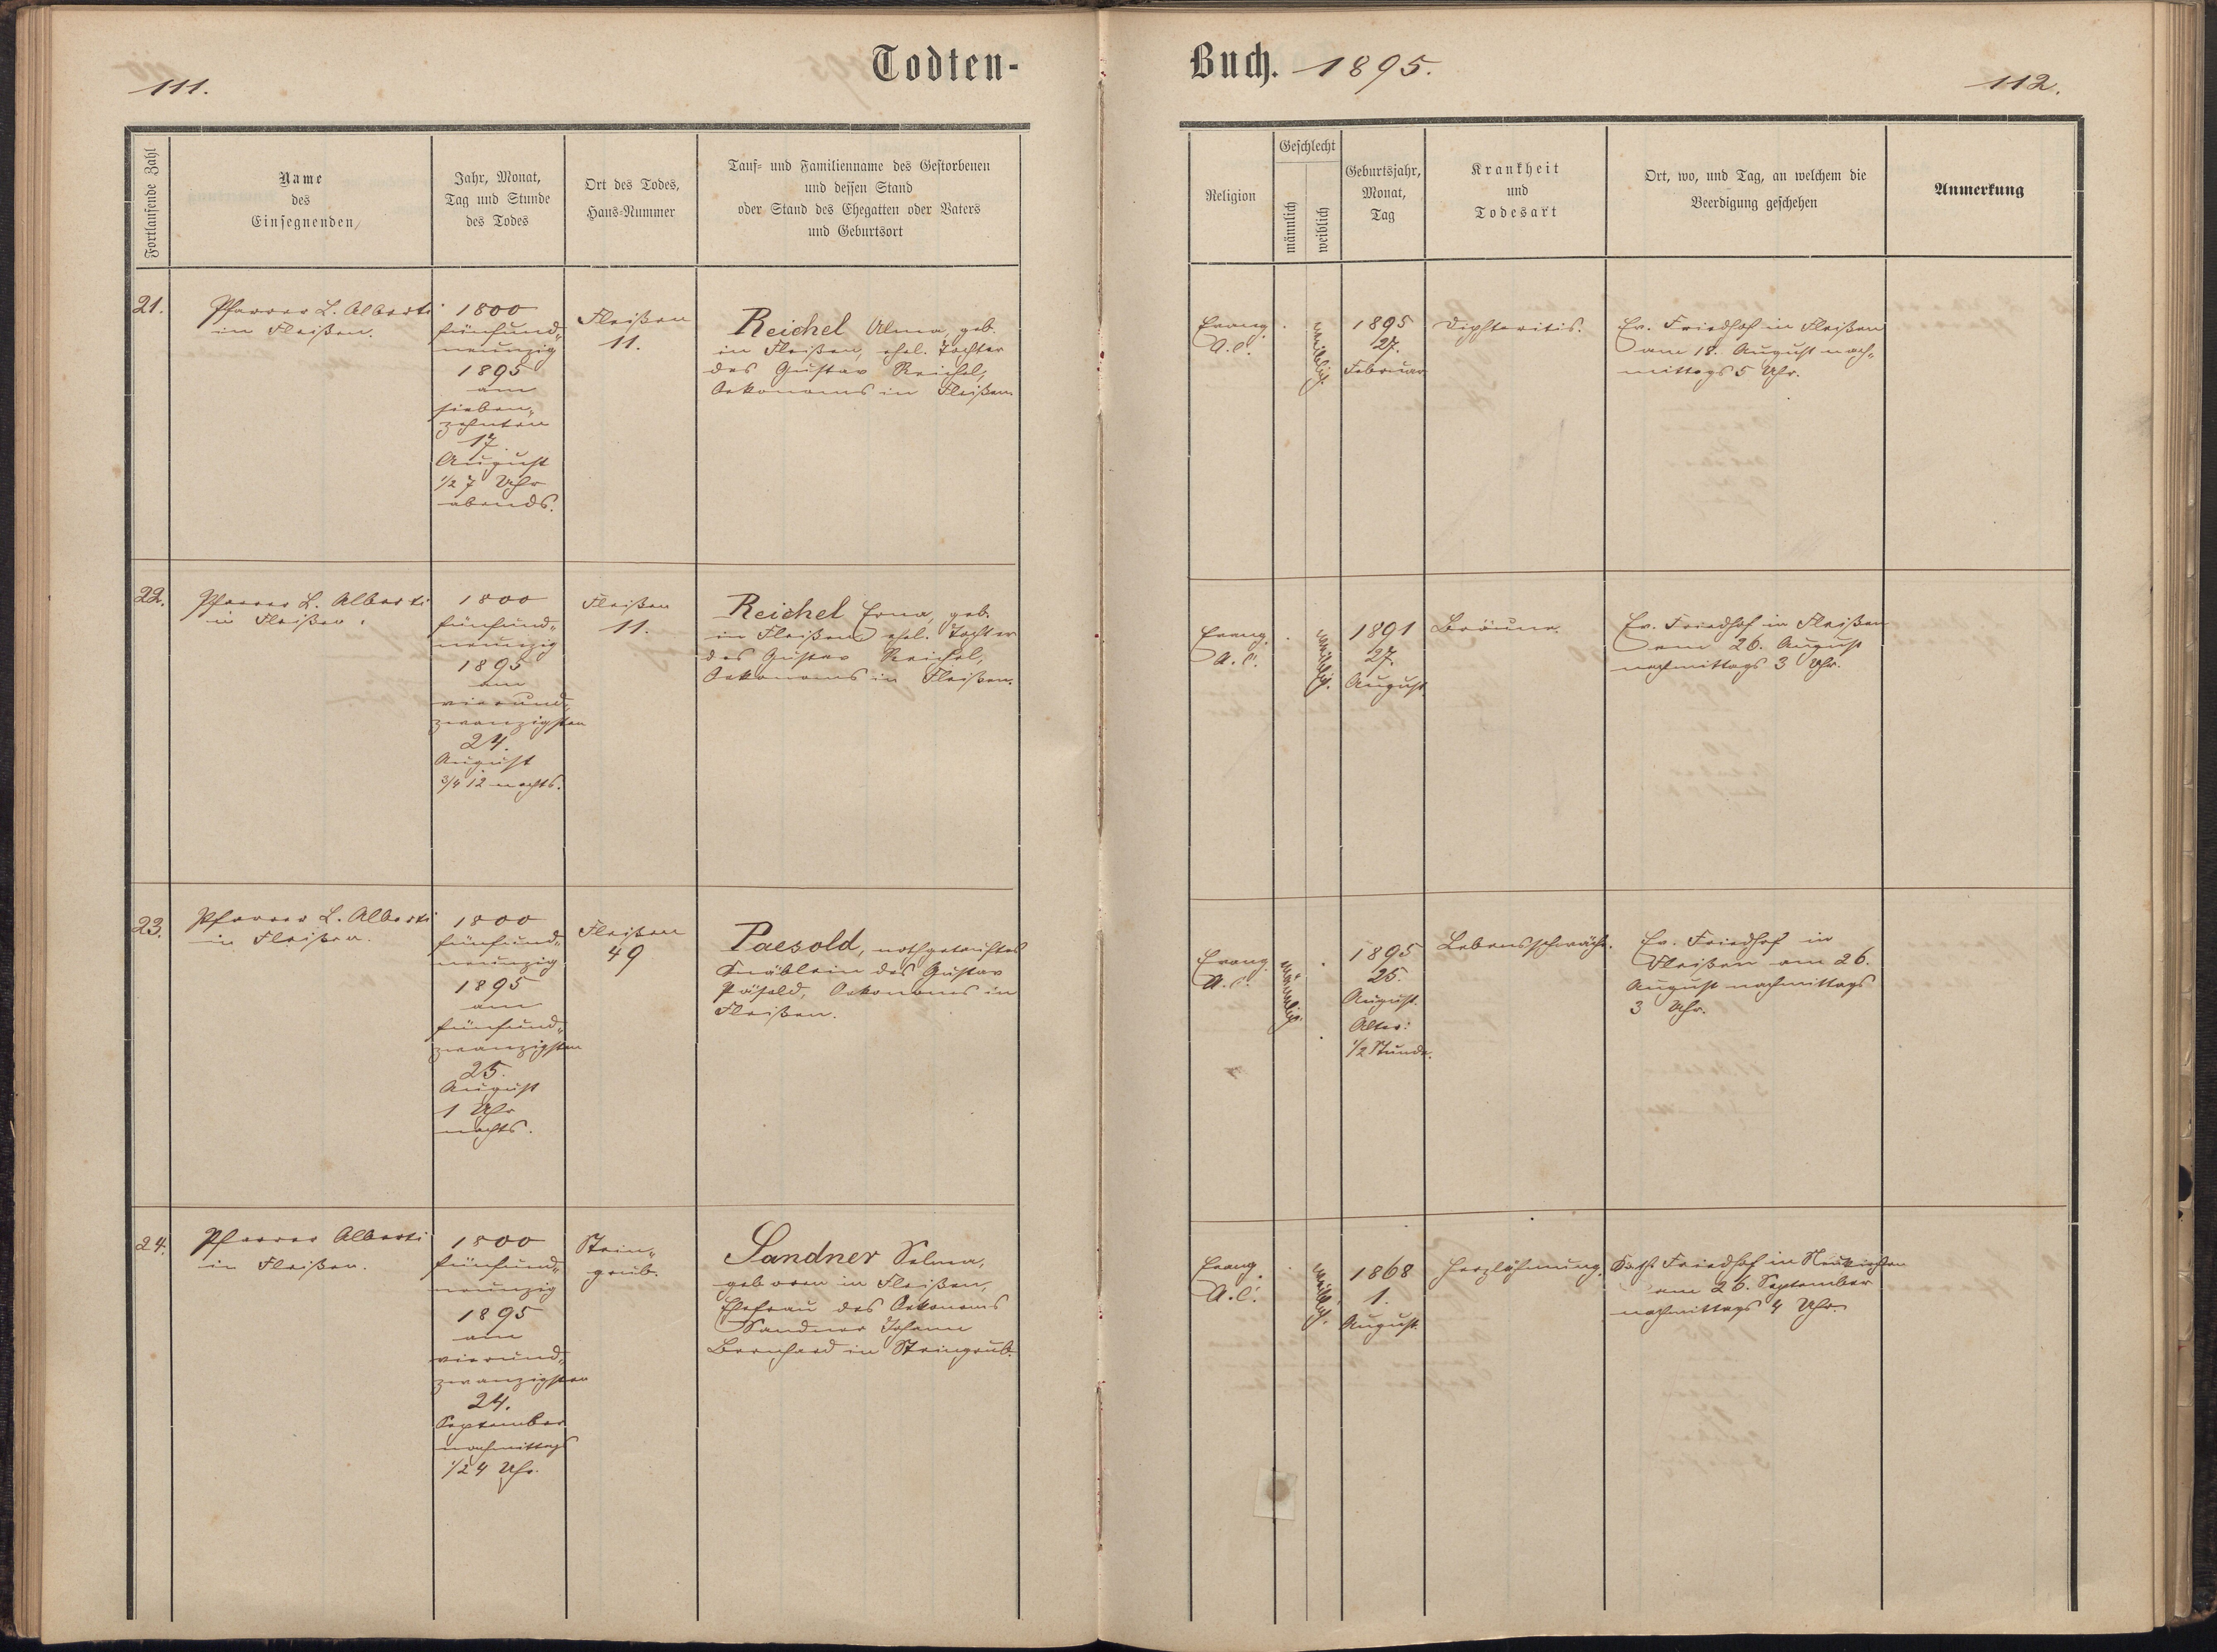 111.
Todten-
Fortlaufende Zahl
Name
des
Einsegnenden
Jahr, Monat,
Tag und Stunde
des Todes
Ort des Todes,
Haus-Nummer
Tauf- und Familienname des Gestorbenen
und dessen Stand
oder Stand des Ehegatten oder Vaters
und Geburtsort
21.
Pfarrer L. Alberti
in Fleißen.
1800
fünfund„
neunzig
1895
am
sieben„
zehnten
17.
August
1/2 7 Uhr
abends.
Fleißen
11.
Reichel Alma, geb.
in Fleißen, ehel. Tochter
des Gustav Reichel,
Oekonoms in Fleißen
22.
Pfarrer L. Alberti
in Fleißen.
1800
fünfund„
neunzig
1895
am
vierund„
zwanzigsten
24.
August
3/4 12 nachts.
Fleißen
11.
Reichel Erna, geb.
in Fleißen ehel. Tochter
des Gustav Reichel,
Oekonoms in Fleißen.
23.
Pfarrer L. Alberti
in Fleißen.
1800
fünfund„
neunzig
1895
am
fünfund„
zwanzigsten
25.
August
1 Uhr
nachts.
Fleißen
49
Paesold, nothgetauftes
Knäblein des Gustav
Päsold, Oekonoms in
Fleißen.
24.
Pfarrer Alberti
in Fleißen.
1800
fünfund„
neunzig
1895
am
vierund„
zwanzigsten
24.
September
nachmittags
1/2 4 Uhr.
Stein„
grub.
Sandner Selma,
geboren in Fleißen,
Ehefrau des Oekonoms
Sandner Johann
Bernhard in Steingrub.
Buch. 1895.
112.
Religion
Geschlecht
männlich
weiblich
Geburtsjahr,
Monat,
Tag
Krankheit
und
Todesart
Ort, wo, und Tag, an welchem die
Beerdigung geschehen
Anmerkung
Evang.
A.C.
weiblich.
1895
27.
Februar
Diphteritis.
Ev. Friedhof in Fleißen
am 18. August nach„
mittags 5 Uhr.
Evang.
A.C.
weiblich.
1891
27.
August.
Bräune.
Ev. Friedhof in Fleißen
am 26. August
nachmittags 3 Uhr.
Evang.
A.C.
männlich.
1895
25.
August.
Alter:
1/2 Stunde.
Lebensschwäche.
Ev. Friedhof in
Fleißen am 26.
August nachmittags
3 Uhr.
Evang.
A.C.
weiblich.
1868
1.
August.
Herzlähmung.
Kath. Friedhof in Neukirchen
am 26. September
nachmittags 4 Uhr.